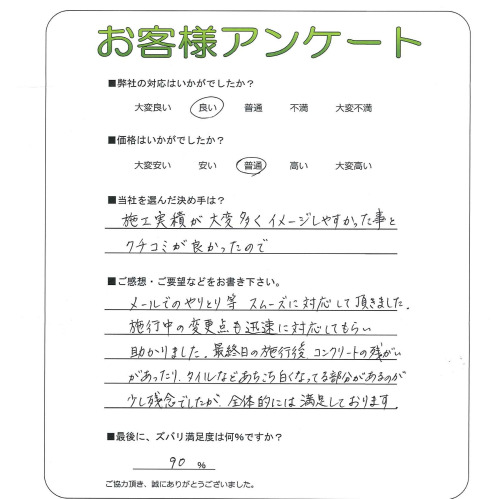 お客様アンケート
■弊社の対応はいかがでしたか？
大変良い　良い　普通　不満　大変不満
■価格はいかがでしたか？
大変安い　安い　普通　高い　大変高い
■当社を選んだ決め手は？
施工実積が大変多くイメージしやすかった事と
クチコミが良かったので
■ご感想・ご要望などをお書き下さい。
メールでのやりとり等 スムーズに対応して頂きました。
施行中の変更点も迅速に対応してもらい
助かりました。最終日の施行後 コンクリートの残がい
があったり、タイルなどあちこち白くなってる部分があるのが
少し残念でしたが、全体的には満足しております。
■最後に、ズバリ満足度は何％ですか？
90 ％
ご協力頂き、誠にありがとうございました。